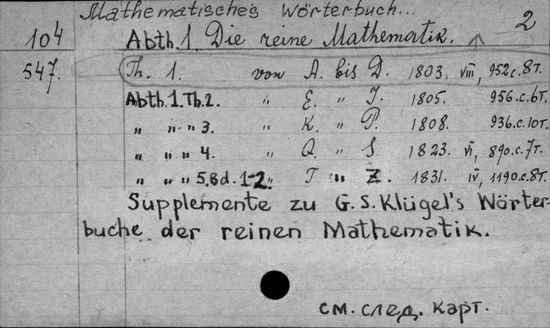 Mathematisches Wörterbuch... 2
104 Abth. 1. Die reine Mathematik.
547. Th. 1. von A. bis D. 1803. VIII, 952 c. 8T.
Abth. 1. Th. 2. " E. " J. 1805. 956 c. 6T.
" " " 3. " K. " P. 1808. 936 c. 10T.
" " " 4. " Q. " S. 1823. VI, 890 c. 7T.
" " " 5. Bd. 1-2. " T " Z. 1831. IV, 1190 c. 8T.
Supplemente zu G. S. Klügel's Wörter-
buche der reinen Mathematik.
см. след. карт.